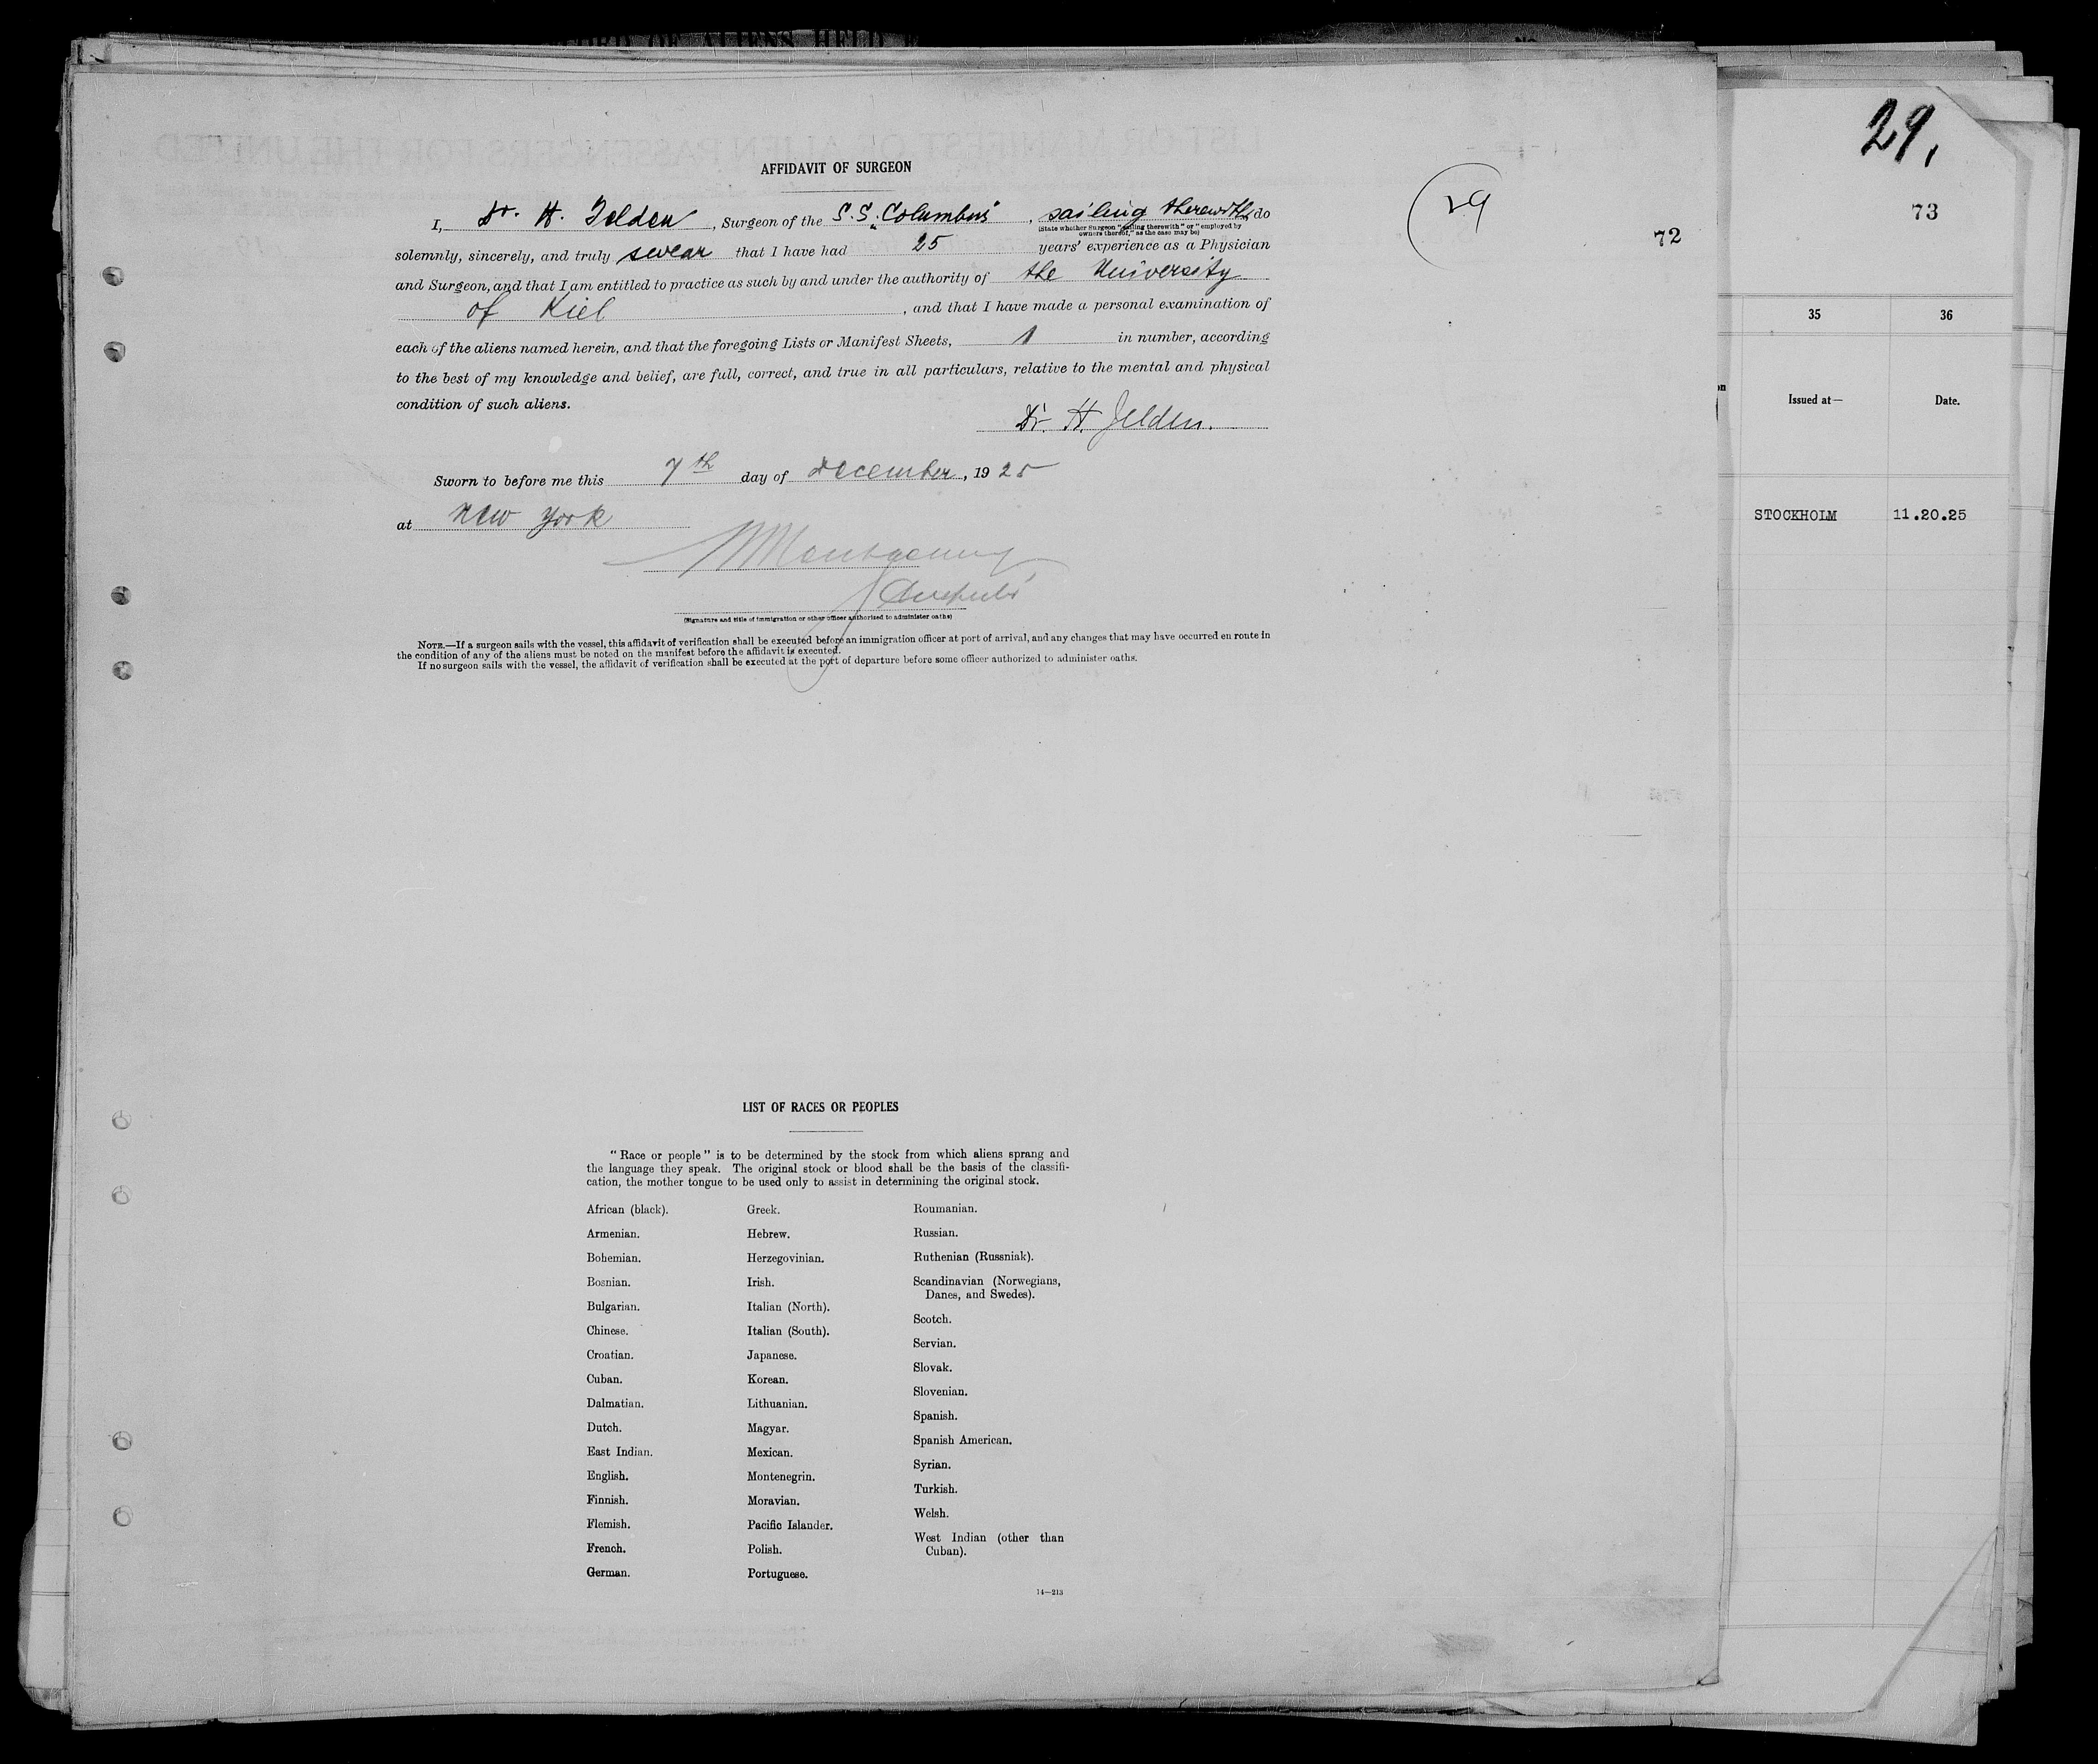 29.
73
29
72
AFFIDAVIT OF SURGEON
I, Dr. H. Jelden, Surgeon of the S.S. "Columbus", sailing therewith do
(State whether Surgeon "sailing therewith" or "employed by
owners thereof," as the case may be)
solemnly, sincerely, and truly swear that I have had 25 years' experience as a Physician
and Surgeon, and that I am entitled to practice as such by and under the authority of the University
of Kiel, and that I have made a personal examination of
each of the aliens named herein, and that the foregoing Lists or Manifest Sheets, 1 in number, according
to the best of my knowledge and belief, are full, correct, and true in all particulars, relative to the mental and physical
condition of such aliens.
Dr. H. Jelden.
Sworn to before me this 7th day of December, 1925
at New York
(Signature and title of immigration or other officer authorized to administer oaths)
NOTE.—If a surgeon sails with the vessel, this affidavit of verification shall be executed before an immigration officer at port of arrival, and any changes that may have occurred en route in
the condition of any of the aliens must be noted on the manifest before the affidavit is executed.
If no surgeon sails with the vessel, the affidavit of verification shall be executed at the port of departure before some officer authorized to administer oaths.
LIST OF RACES OR PEOPLES
"Race or people" is to be determined by the stock from which aliens sprang and
the language they speak. The original stock or blood shall be the basis of the classifi-
cation, the mother tongue to be used only to assist in determining the original stock.
African (black).
Armenian.
Bohemian.
Bosnian.
Bulgarian.
Chinese.
Croatian.
Cuban.
Dalmatian.
Dutch.
East Indian.
English.
Finnish.
Flemish.
French.
German.
Greek.
Hebrew.
Herzegovinian.
Irish.
Italian (North).
Italian (South).
Japanese.
Korean.
Lithuanian.
Magyar.
Mexican.
Montenegrin.
Moravian.
Pacific Islander.
Polish.
Portuguese.
Roumanian.
Russian.
Ruthenian (Russniak).
Scandinavian (Norwegians,
Danes, and Swedes).
Scotch.
Servian.
Slovak.
Slovenian.
Spanish.
Spanish American.
Syrian.
Turkish.
Welsh.
West Indian (other than
Cuban).
14—213
35 36
Issued at— Date.
STOCKHOLM 11.20.25